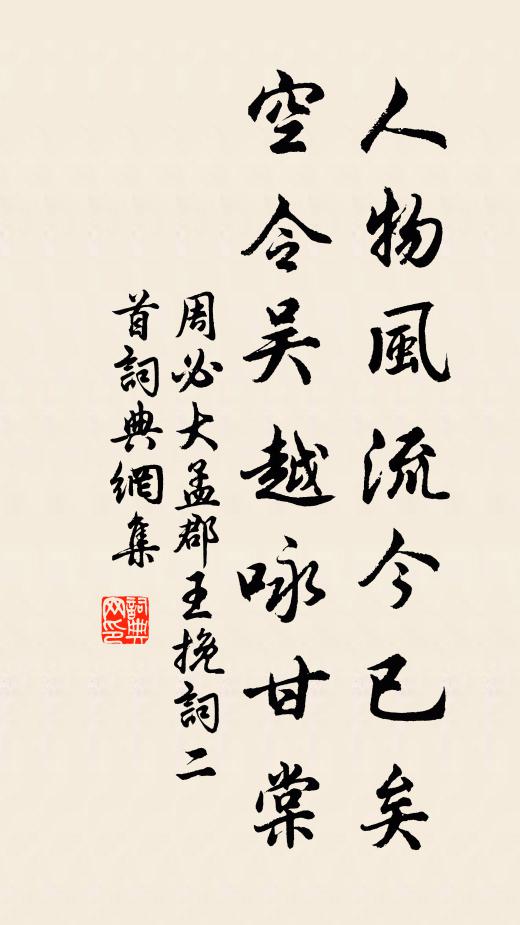 人物風流今已矣
空令吳越咏甘棠
周必大孟郡王挽詞二
首詞典網集
詞典
网印